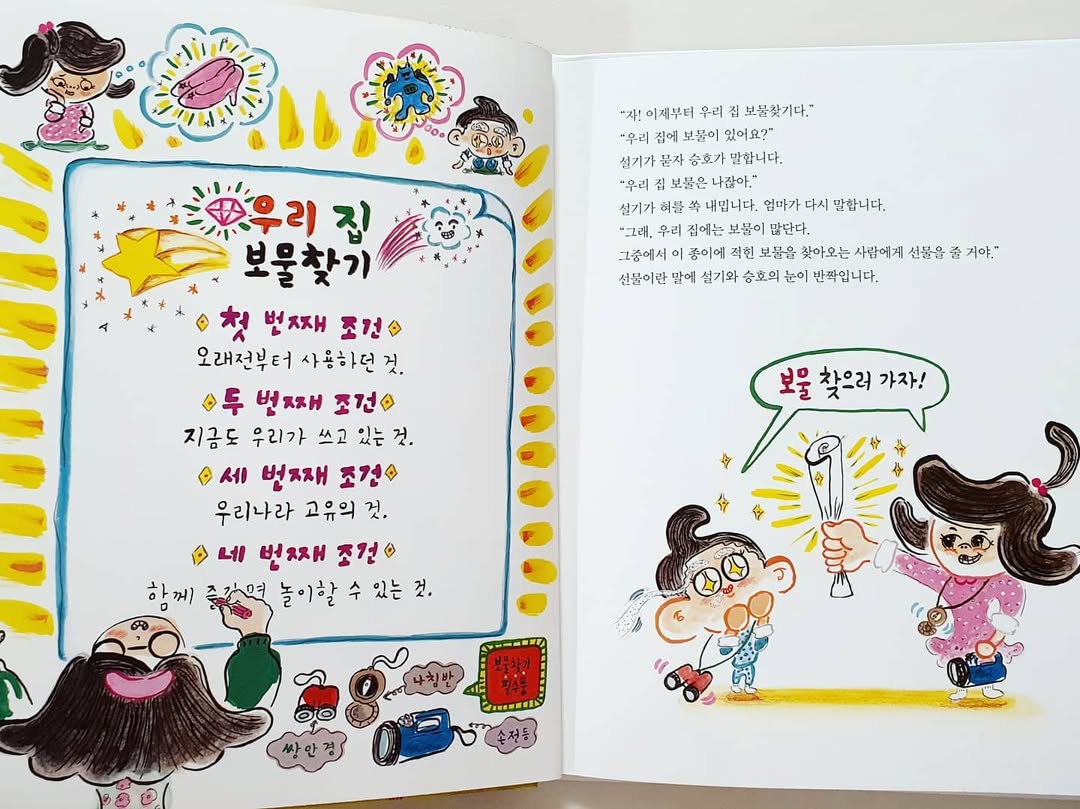 우리 집
보물찾기
첫 번째 조건
오래전부터 사용하던 것.
두 번째 조건
지금도 우리가 쓰고 있는 것.
세 번째 조건
우리나라 고유의 것.
네 번째 조건
함께 놀이할 수 있는 것.
보물찾기
필수품
나침반
쌍안경
손전등
“자! 이제부터 우리 집 보물찾기다.”
“우리 집에 보물이 있어요?”
설기가 묻자 승호가 말합니다.
“우리 집 보물은 나잖아.”
설기가 혀를 쏙 내밉니다. 엄마가 다시 말합니다.
“그래, 우리 집에는 보물이 많단다.
그중에서 이 종이에 적힌 보물을 찾아오는 사람에게 선물을 줄 거야.”
선물이란 말에 설기와 승호의 눈이 반짝입니다.
보물 찾으러 가자!